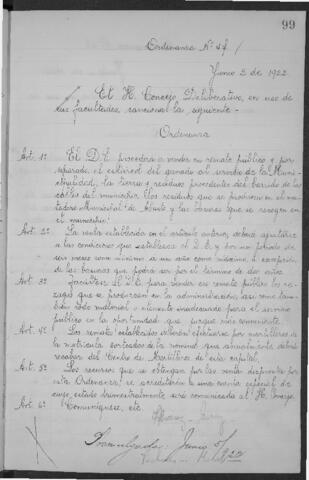 99
Ordenanza Nº 47/
Junio 2 de 1922.
El H. Concejo Deliberativo, en uso de
sus facultades, sanciona la siguiente -
Ordenanza
Art. 1º El D.E. procederá a vender en remate público y por
separado, el estiércol del ganado al servicio de la Muni-
cipalidad, la tierra y residuos procedentes del barrido de las
calles del municipio, los residuos que se producen en el ma-
tadero Municipal de Abasto y las basuras que se recogen en
el municipio.
Art. 2º La venta establecida en el artículo anterior, deberá ajustarse
a las condiciones que establezca el D.E. y por un período de
seis meses como mínimo a un año como máximo, á excepción
de las basuras que podrá ser por el término de dos años.
Art. 3º Facúltase al D.E. para vender en remate público los re-
zagos que se produzcan en la administración, así como tam-
bién todo material o elemento inadecuado para el servicio
público en la oportunidad que juzgue más conveniente.
Art. 4º Los remates establecidos serán efectuados por martilleros de
la matrícula sorteados de la nómina que anualmente deberá
recabar del Centro de Martilleros de esta capital.
Art. 5º Los recursos que se obtengan por las ventas dispuestas por
esta Ordenanza, se acreditarán a una cuenta especial de
cuyo estado trimestralmente será comunicado al H. Concejo.
Art. 6º Comuníquese, etc.
Promulgada: Junio 5/
1922